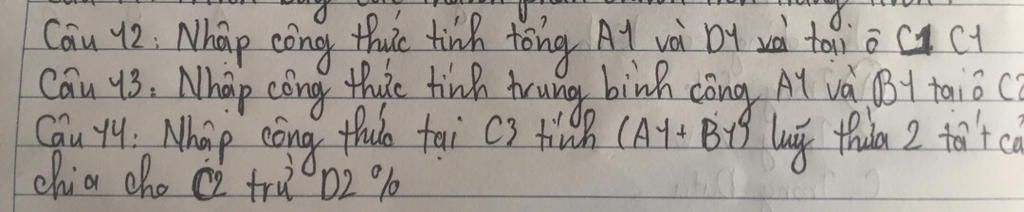 Câu 12: Nhập công thức tính tổng A1 và D1 và tại ô C1 C1
Câu 13: Nhập công thức tính trung bình cộng A1 và B1 tại ô C2
Câu 14: Nhập công thức tại C3 tính (A1+B1) luỹ thừa 2 tất cả
chia cho C2 trừ D2 %